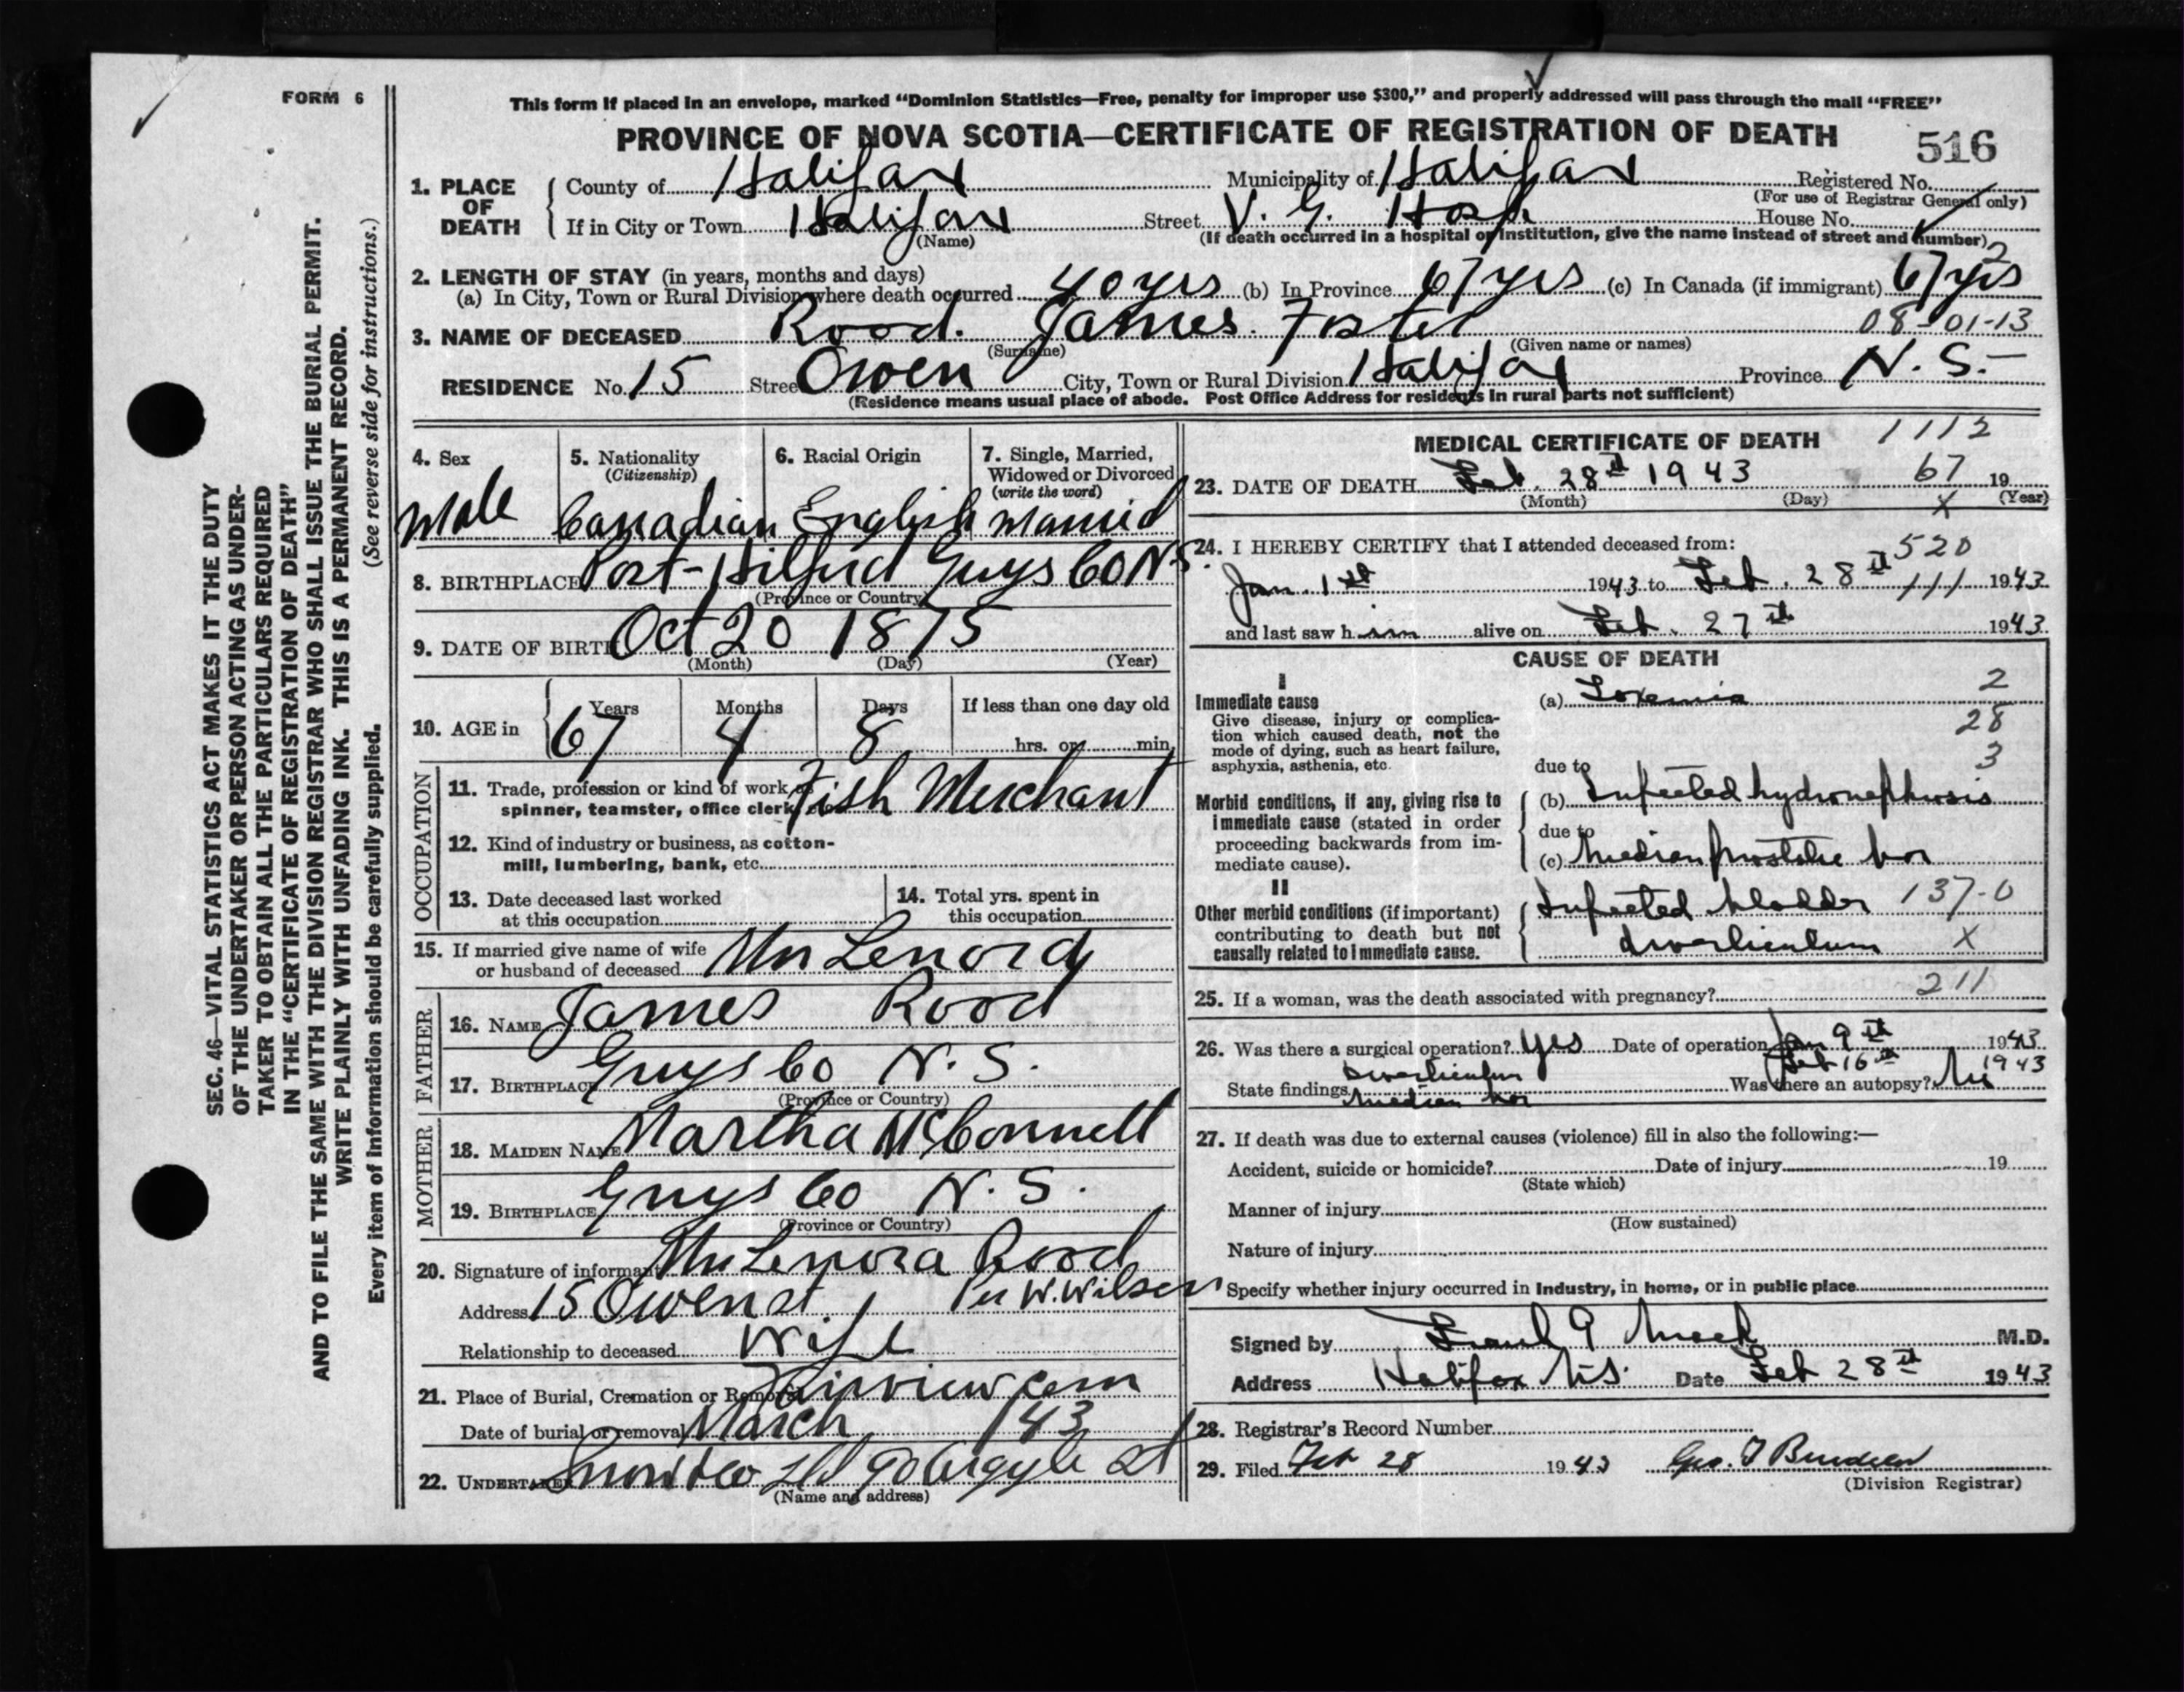 FORM 6
This form if placed in an envelope, marked “Dominion Statistics—Free, penalty for improper use $300,” and properly addressed will pass through the mail “FREE”
PROVINCE OF NOVA SCOTIA—CERTIFICATE OF REGISTRATION OF DEATH
516
1. PLACE OF DEATH
County of Halifax Municipality of Halifax Registered No.
(For use of Registrar General only)
If in City or Town Halifax Street V. G. Hosp House No.
(Name) (If death occurred in a hospital or institution, give the name instead of street and number)
2
2. LENGTH OF STAY (in years, months and days)
(a) In City, Town or Rural Division where death occurred 40 yrs (b) In Province 67 yrs (c) In Canada (if immigrant) 67 yrs
3. NAME OF DECEASED Rood. James Foster 08-01-13
(Surname) (Given name or names)
RESIDENCE No. 15 Street Owen City, Town or Rural Division Halifax Province N. S.
(Residence means usual place of abode. Post Office Address for residents in rural parts not sufficient)
4. Sex
Male
5. Nationality
(Citizenship)
Canadian
6. Racial Origin
English
7. Single, Married,
Widowed or Divorced
(write the word)
Married
8. BIRTHPLACE Port-Hilford Guys Co N.S.
(Province or Country)
9. DATE OF BIRTH Oct 20 1875
(Month) (Day) (Year)
10. AGE in
Years Months Days If less than one day old
67 4 8 hrs. or min.
OCCUPATION
11. Trade, profession or kind of work, as
spinner, teamster, office clerk, etc. Fish Merchant
12. Kind of industry or business, as cotton-
mill, lumbering, bank, etc.
13. Date deceased last worked
at this occupation
14. Total yrs. spent in
this occupation
15. If married give name of wife
or husband of deceased Mrs
FATHER
16. NAME James Rood
17. BIRTHPLACE Guys Co N. S.
(Province or Country)
MOTHER
18. MAIDEN NAME Martha McConnell
19. BIRTHPLACE Guys Co N. S.
(Province or Country)
20. Signature of informant Mrs Lenora Rood
Address 15 Owen st Per W. Wilson
Relationship to deceased Wife
21. Place of Burial, Cremation or Removal Fairview Cem
Date of burial or removal March 1 43
22. UNDERTAKER Snow & Co Ltd 90 Argyle St
(Name and address)
MEDICAL CERTIFICATE OF DEATH
1112
23. DATE OF DEATH Feb. 28th 1943 67 19
(Month) (Day) X (Year)
24. I HEREBY CERTIFY that I attended deceased from:
520
Jan. 1st 1943 to Feb. 28th 111 1943
and last saw him alive on Feb. 27th 1943
CAUSE OF DEATH
I
Immediate cause
Give disease, injury or complica-
tion which caused death, not the
mode of dying, such as heart failure,
asphyxia, asthenia, etc.
(a) Toxemia 2
28
due to 3
Morbid conditions, if any, giving rise to
immediate cause (stated in order
proceeding backwards from im-
mediate cause).
(b) Infected hydronephrosis
due to
(c) Median prostatic bar
II
Other morbid conditions (if important)
contributing to death but not
causally related to immediate cause.
Infected bladder 137-0
diverticulum X
25. If a woman, was the death associated with pregnancy? 211
26. Was there a surgical operation? Yes Date of operation Jan 9th 1943
Feb 16th 1943
State findings Median bar Was there an autopsy? No
27. If death was due to external causes (violence) fill in also the following:—
Accident, suicide or homicide? Date of injury 19
(State which)
Manner of injury
(How sustained)
Nature of injury
Specify whether injury occurred in Industry, in home, or in public place
Signed by Frank G Mack M.D.
Address Halifax N.S. Date Feb 28th 1943
28. Registrar's Record Number
29. Filed Feb 28 1943 Geo.
(Division Registrar)
SEC. 46—VITAL STATISTICS ACT MAKES IT THE DUTY
OF THE UNDERTAKER OR PERSON ACTING AS UNDER-
TAKER TO OBTAIN ALL THE PARTICULARS REQUIRED
IN THE “CERTIFICATE OF REGISTRATION OF DEATH”
AND TO FILE THE SAME WITH THE DIVISION REGISTRAR WHO SHALL ISSUE THE BURIAL PERMIT.
WRITE PLAINLY WITH UNFADING INK. THIS IS A PERMANENT RECORD.
Every item of information should be carefully supplied. (See reverse side for instructions.)